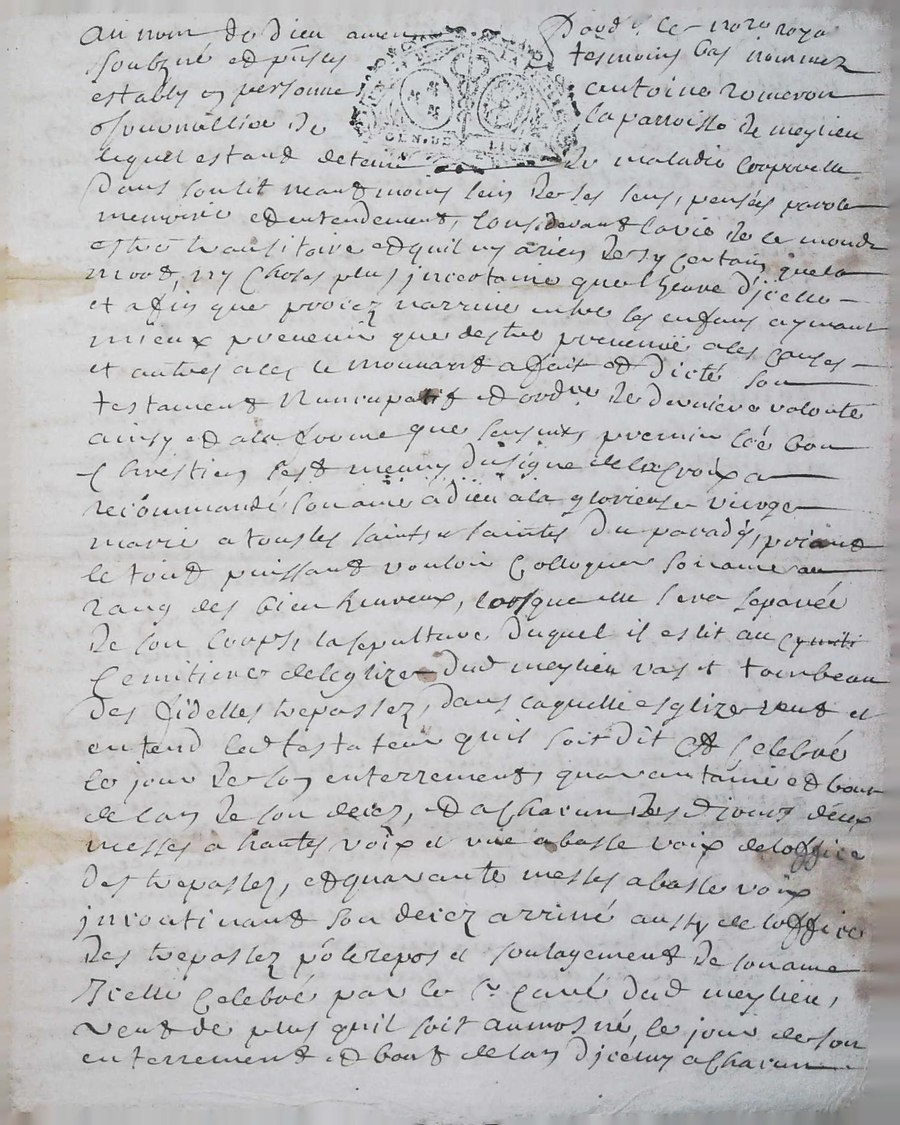 au nom de Dieu amen Pard.t le no.re royal
soubzné et pntes tesmoins bas nommez
estably en personne antoine
de la parroisse de meylieu
GEN. DE LION
lequel estand detenu de maladie corporelle
dans son lit neantmoins bien de ses sens, pensées parole
memoire et entendement, considerant la vie de ce monde
estre transitoire et quil ny a rien de sy certain que la
mort, ny chose plus incertaine que lheure dicelle
et afin que procez narrive entre ses enfans aymant
mieux prevenir que destre prevenu a ses causes
et autres a ces le mouvant a fait et dicté son
testament nuncupatif et ord.re de derniere volonté
ainsy et a la forme que sensuit, premier coê bon
Chrestien sest meuny du signe de la croix a
recommandé son ame a dieu a la glorieuse vierge
marie a tous les saints et saintes du paradis, priant
le tout puissant vouloir colloquer son ame au
rang des bien heureux, lorsque elle sera separée
de son corps, la sepulture duquel il eslit au cymiti
Cemitiere de leglize dud meylieu vas et tombeau
des fidelles trepassez, dans laquelle esglize veut et
entend led testateur quil soit dit et celebré
le jour de son enterrement, quarantaine et bout
de lan de son decez, et a chacun desd jours deux
messes a hautes voix et une a basse voix de loffice
des trepassez, et quarante messes a basse voix
incontinant son decez arrivé aussy de loffice
des trepassez p.r le repos et soulagement de son ame
Icelle celebré par le s.r Curé dud meylieu,
veut de plus quil soit aumosné, le jour de son
enterrement et bout de lan dicelluy a chacun